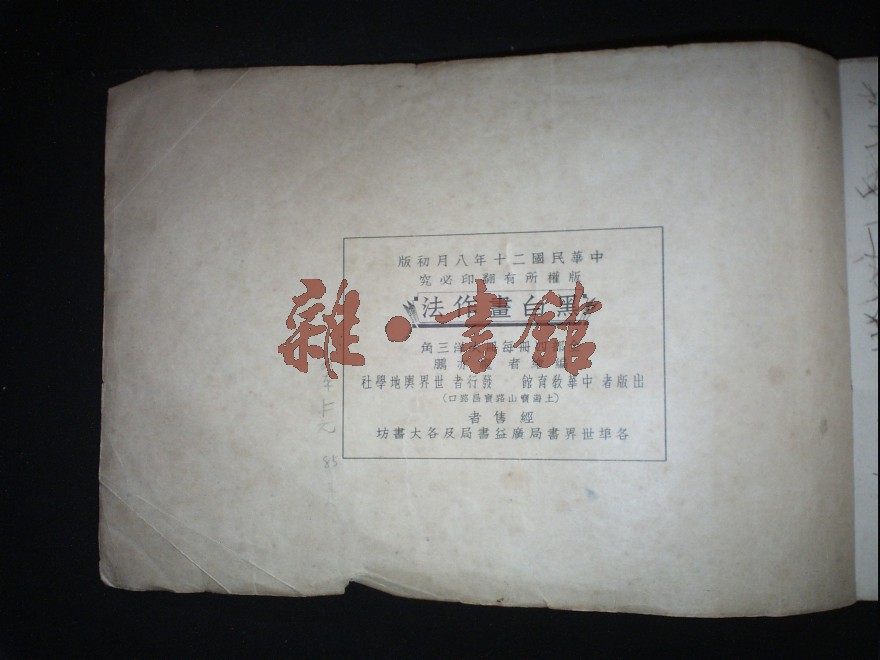 中華民國二十年八月初版
版權所有翻印必究
黑白畫作法
冊每 洋三角
者 亦鵬
出版者 中華教育館 發行者 世界輿地學社
(上海寶山路寶昌路口)
經售者
各埠世界書局廣益書局及各大書坊
雜·書館
元
85